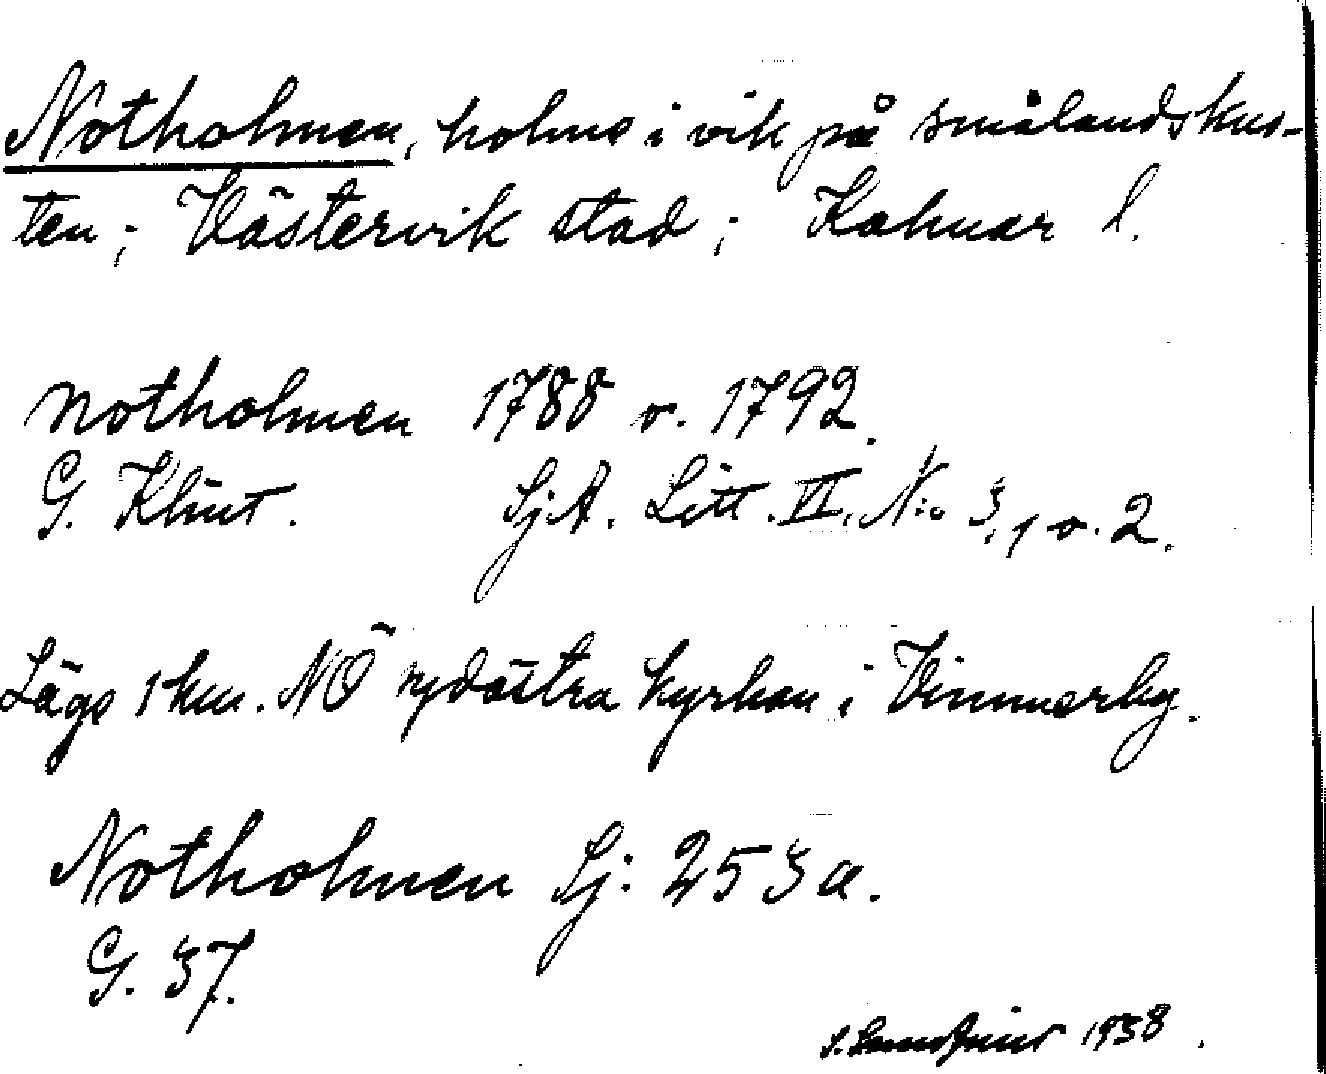 Notholmen, holme i vik på smålandskus-
ten; Västervik stad; Kalmar l.
Notholmen 1788 o. 1792.
G. Klint. SjA. Litt. VI. N:o 3, 1 o. 2.
Läge 1 km. NÖ sydöstra kyrkan i Vimmerby.
Notholmen Sj: 253a.
G. 37.
1938.